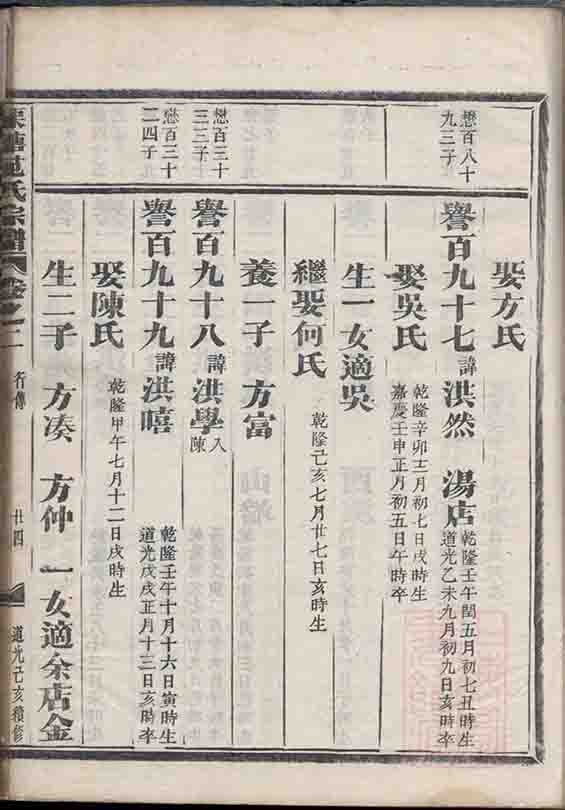 娶方氏
懋百八十
九三子
譽百九十七 諱洪然 湯店 乾隆壬午閏五月初七丑時生
道光乙未九月初九日亥時卒
娶吳氏 乾隆辛卯十二月初七日戌時生
嘉慶壬申正月初五日午時卒
生一女適吳
繼娶何氏 乾隆己亥七月廿七日亥時生
養一子 方富
懋百三十
三三子
譽百九十八 諱洪學 入
陳
懋百三十
二四子
譽百九十九 諱洪嘻 乾隆壬午十月十六日寅時生
道光戊戌正月十三日亥時卒
娶陳氏 乾隆甲午七月十二日戌時生
生二子 方凑 方仲 一女適余店金
范氏宗譜 卷之一 行傳 廿四 道光己亥續修